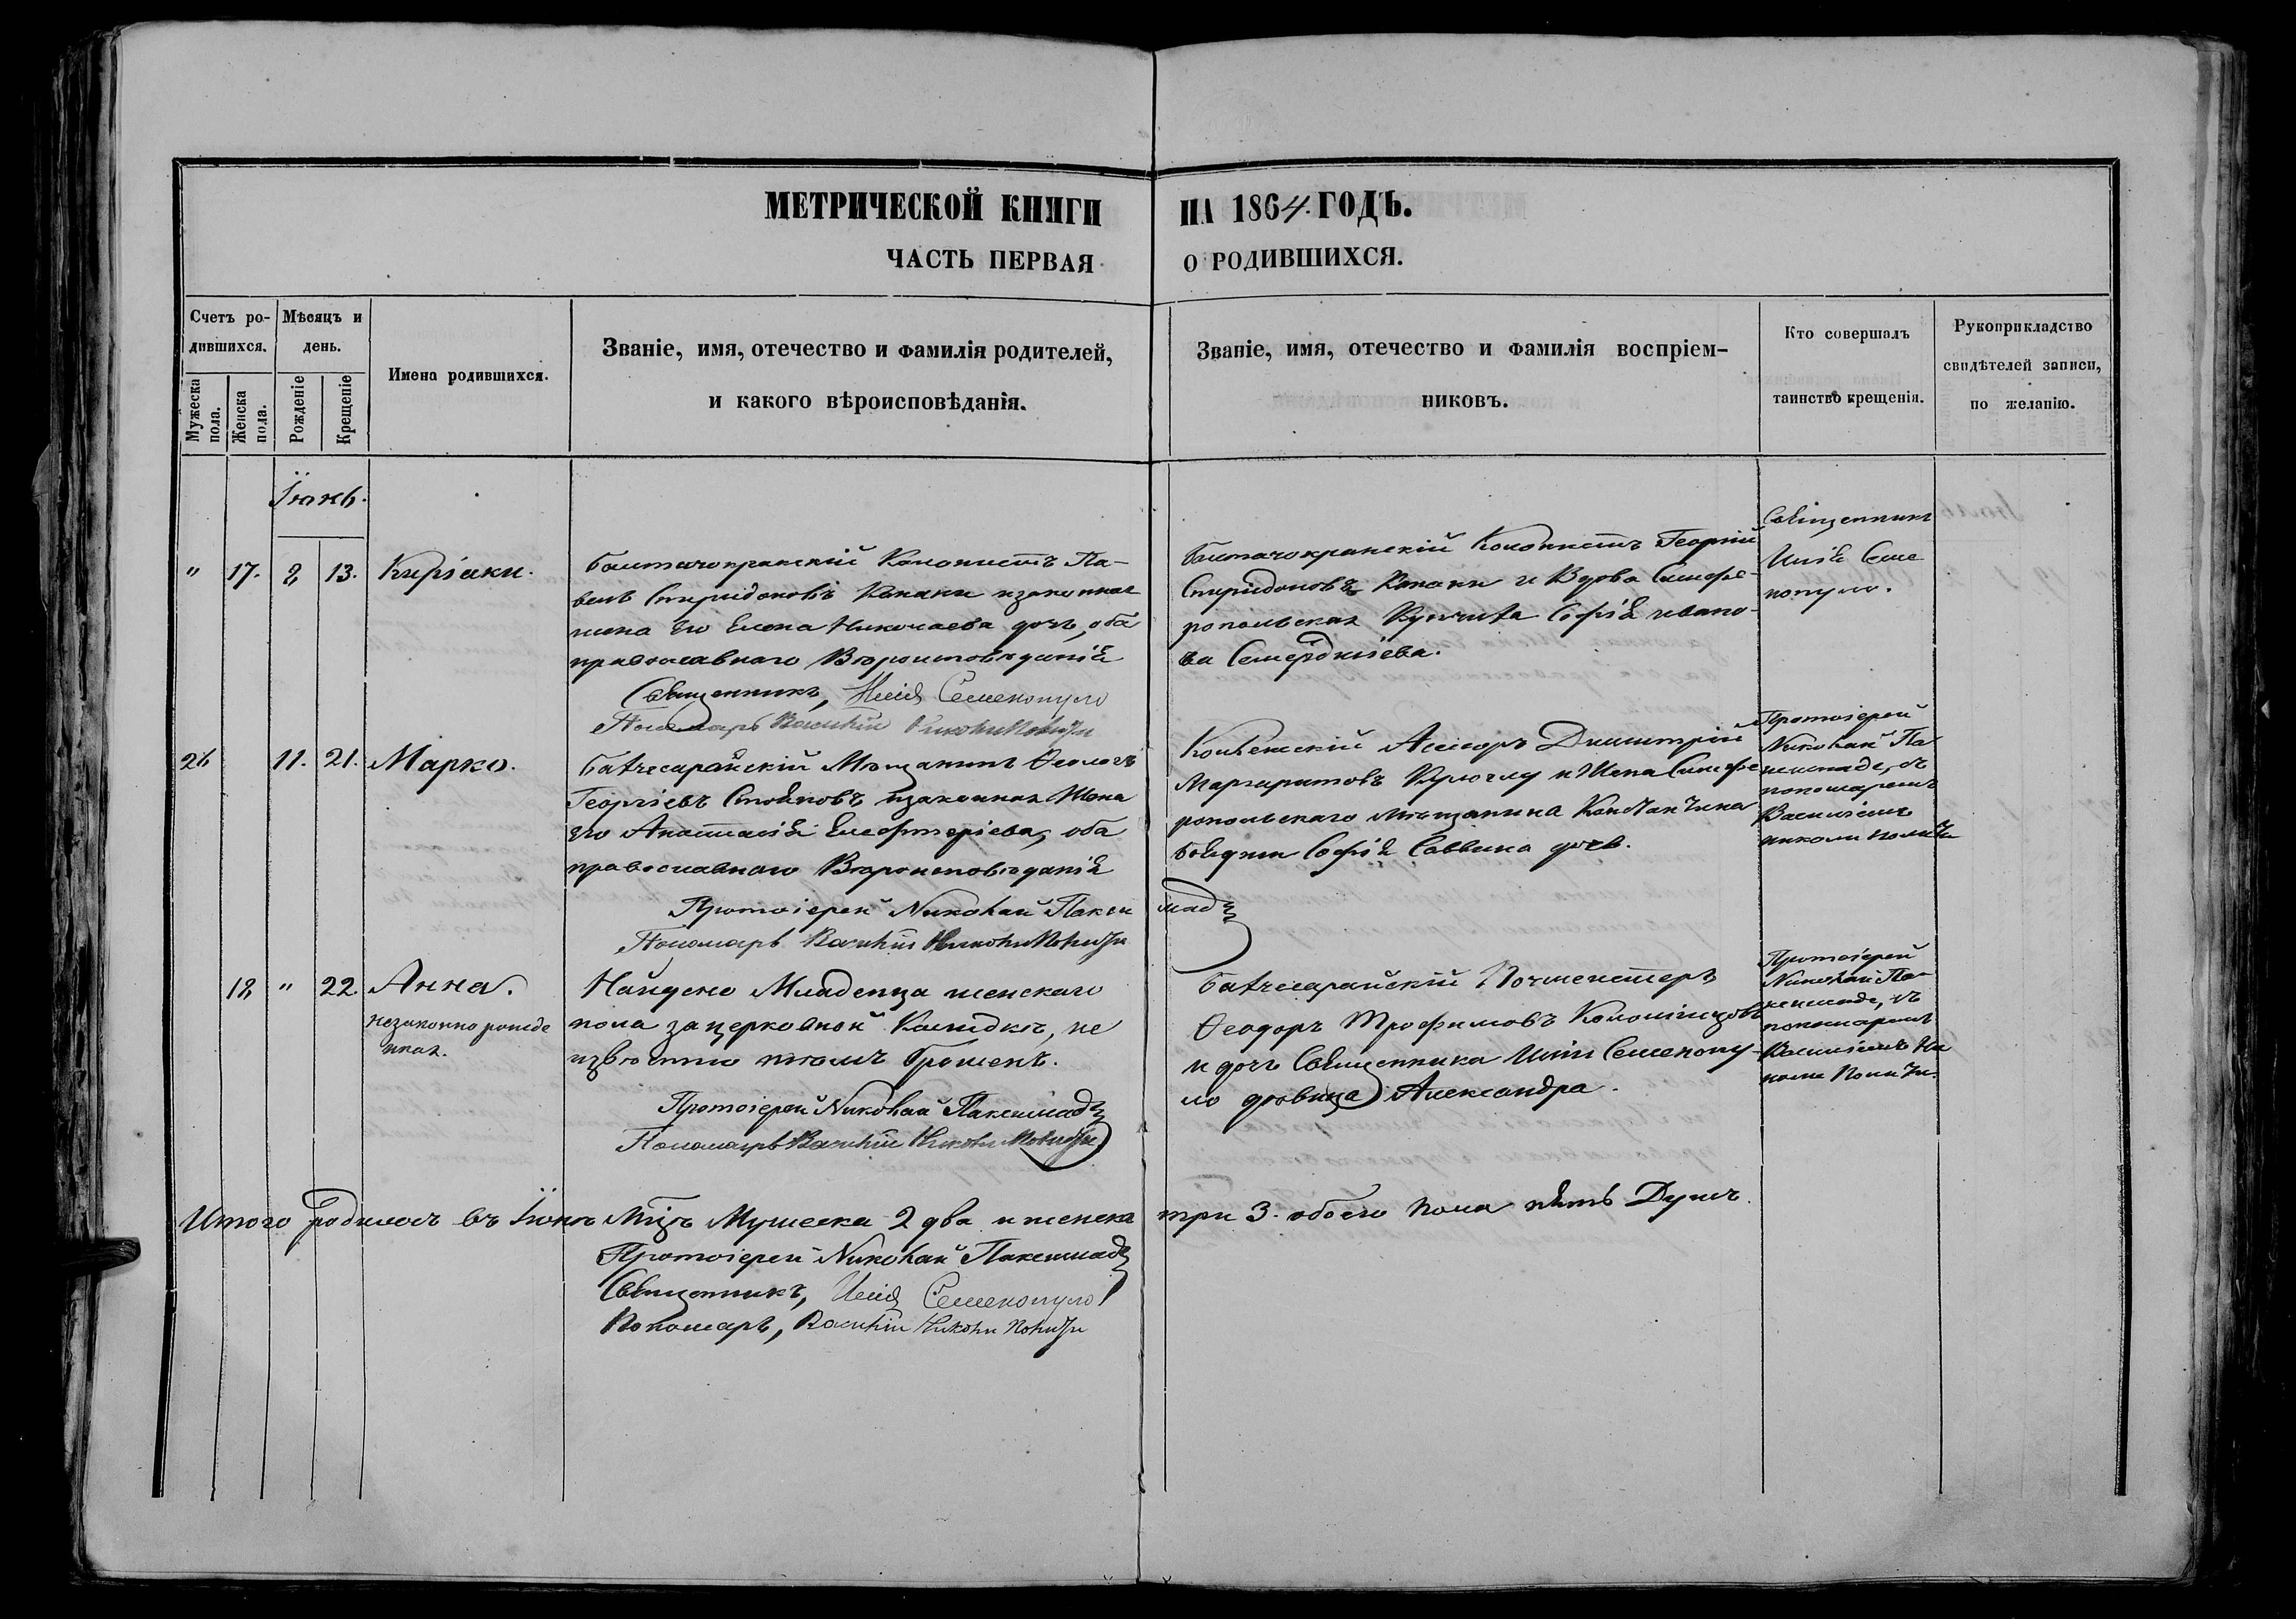 МЕТРИЧЕСКОЙ КНИГИ НА 1864. ГОДЪ.
ЧАСТЬ ПЕРВАЯ О РОДИВШИХСЯ.
Счетъ ро-
дившихся.
Мужеска пола.
Женска пола.
Мѣсяцъ и
день.
Рожденіе
Крещеніе
Имена родившихся.
Званіе, имя, отечество и фамилія родителей,
и какого вѣроисповѣданія.
Званіе, имя, отечество и фамилія воспріем-
никовъ.
Кто совершалъ
таинство крещенія.
Рукоприкладство
свидѣтелей записи,
по желанію.
Іюнь.
" 17. 2 13. Киріаки.
Колонистъ Па-
велъ Спиридоновъ изаконная
жена его Елена Николаева дочь, оба
православнаго Вѣроисповѣданія
Священникъ, Илія Семенопуло
Пономарь Василій
Колонистъ Георгій
Спиридоновъ и Вдова Симфе-
ропольская Софія ивано-
ва
Священникъ
Илія Семе
нопуло.
26 11. 21. Марко.
Мѣщанинъ Ѳеологъ
Георгіевъ Стояновъ изаконная Жена
его Анастасія Елефтеріева, оба
православнаго Вѣроисповѣданія
Протоіерей Николай Пакси мадз
Пономарь Василій
Димитрій
Маргаритовъ и Жена Симфе
ропольскаго мѣщанина
Софія Саввина дочь.
Протоіерей
Николай Па
ксимадз, съ
пономаремъ
Василіемъ
18 " 22. Анна.
незаконно рожде
нная.
Найдено Младенца женскаго
пола за церковной не
извѣстно кѣмъ брошенъ.
Протоіерей Николай Паксимадз
Пономарь Василій
Почмейстеръ
Ѳеодоръ Трофимовъ
и дочь Священника Иліи Семенопу-
ло дѣвица Александра.
Протоіерей
Николай Па-
ксимадз, съ
пономаремъ
Василіемъ
Итого родилось въ Іюнѣ Мужеска 2 два и женска три 3. обоего пола пять Душъ.
Протоіерей Николай Паксимадз
Священникъ, Илія Семенопуло
Пономарь, Василій